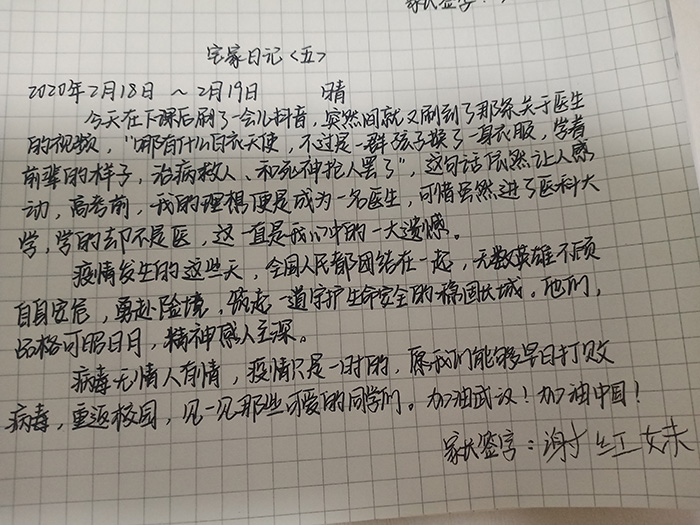 家长签字：
宅家日记〈五〉
2020年2月18日 ～2月19日 晴
今天在下课后刷了一会儿抖音，突然间就又刷到了那条关于医生
的视频，“哪有什么白衣天使，不过是一群孩子换了一身衣服，学着
前辈的样子，治病救人、和死神抢人罢了”，这句话依然让人感
动，高考前，我的理想便是成为一名医生，可惜虽然进了医科大
学，学的却不是医，这一直是我心中的一大遗憾。
疫情发生的这些天，全国人民都团结在一起，无数英雄不顾
自身安危，勇赴险境，筑起一道守护生命安全的稳固长城。他们，
品格可昭日月，精神感人至深。
病毒无情人有情，疫情只是一时的，愿我们能够早日打败
病毒，重返校园，见一见那些可爱的同学们。加油武汉！加油中国！
家长签字：谢红妹